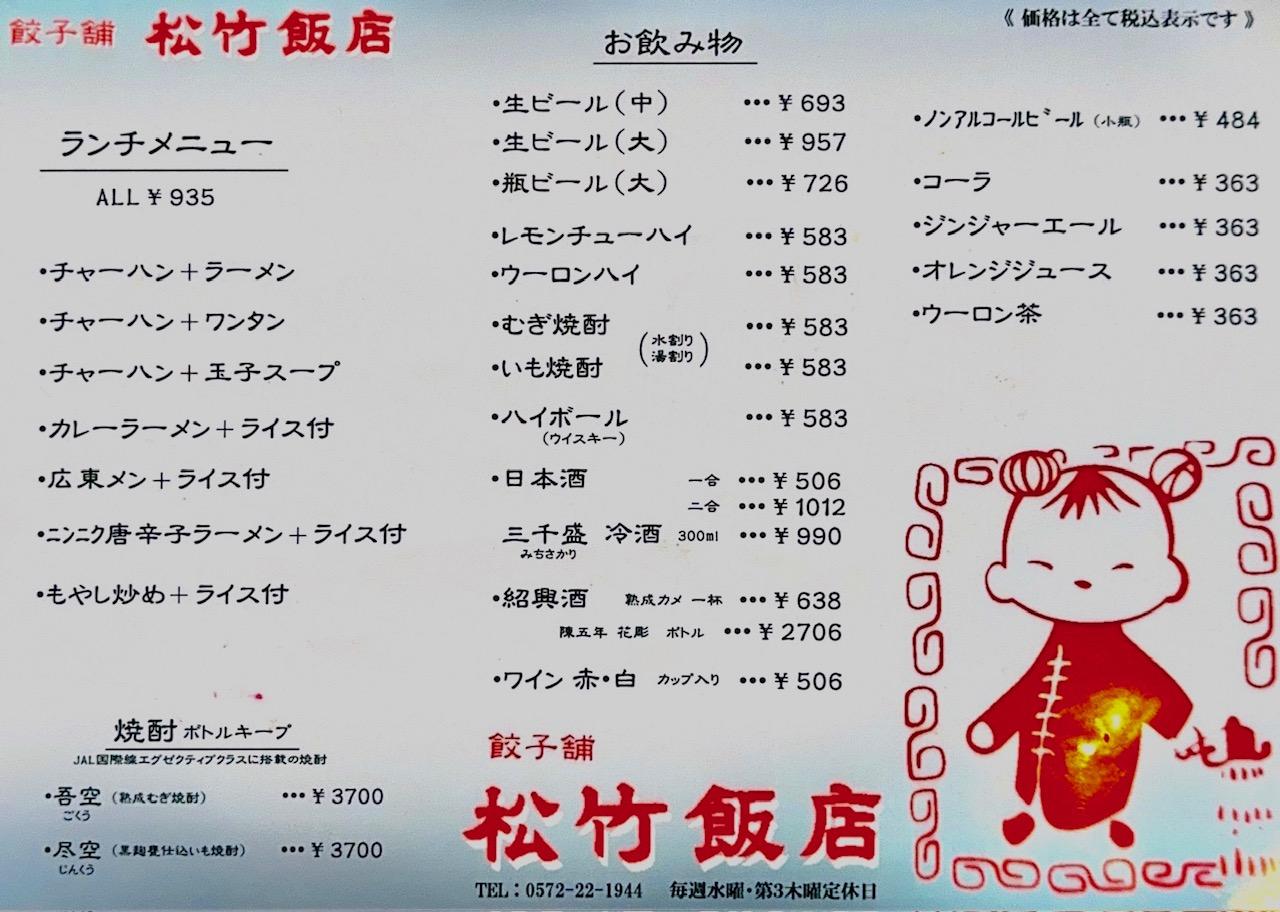 餃子舗 松竹飯店
ランチメニュー
ALL ¥935
・チャーハン+ラーメン
・チャーハン+ワンタン
・チャーハン+玉子スープ
・カレーラーメン+ライス付
・広東メン+ライス付
・ニンニク唐辛子ラーメン+ライス付
・もやし炒め+ライス付
焼酎 ボトルキープ
JAL国際線エグゼクティブクラスに搭載の焼酎
・吾空(熟成むぎ焼酎) ・・・¥3700
ごくう
・尽空(黒麹甕仕込いも焼酎) ・・・¥3700
じんくう
お飲み物
・生ビール(中) ・・・¥693
・生ビール(大) ・・・¥957
・瓶ビール(大) ・・・¥726
・レモンチューハイ ・・・¥583
・ウーロンハイ ・・・¥583
・むぎ焼酎 ・・・¥583
(水割り
湯割り)
・いも焼酎 ・・・¥583
・ハイボール ・・・¥583
(ウイスキー)
・日本酒 一合 ・・・¥506
二合 ・・・¥1012
三千盛 冷酒 300ml ・・・¥990
みちさかり
・紹興酒 熟成カメ 一杯 ・・・¥638
陳五年 花彫 ボトル ・・・¥2706
・ワイン 赤・白 カップ入り ・・・¥506
餃子舗
松竹飯店
TEL:0572-22-1944 毎週水曜・第3木曜定休日
《 価格は全て税込表示です 》
・ノンアルコールビール(小瓶) ・・・¥484
・コーラ ・・・¥363
・ジンジャーエール ・・・¥363
・オレンジジュース ・・・¥363
・ウーロン茶 ・・・¥363